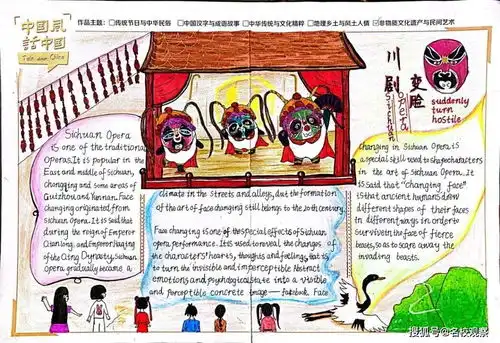 中国风
话中国
作品主题：□传统节日与中华民俗 □中国汉字与成语故事 □中华传统与文化精粹 □地理乡土与风土人情 ☑非物质文化遗产与民间艺术
川剧
变脸
Sichuan
opera
suddenly
turn
hostile
Sichuan Opera
is one of the traditional
Operas. It is popular in the
East and middle of Sichuan,
chongqing and some areas of
Guizhou and Yunnan. Face
changing originated from
Sichuan Opera. It is said that
during the reign of Emperor
Qianlong, and Emperor
of the Qing Dynasty, Sichuan
opera gradually became a
climate in the streets and alleys, but the formation
of the art of face changing still belongs to the 20th century.
Face changing is one of the special effects of Sichuan
opera performance. It is used to reveal the changes of
the characters' hearts, thoughts and feelings, that is
to turn the invisible and imperceptible Abstract
emotions and psychological state into a visible
and perceptible concrete image — facebook. Face
changing in Sichuan Opera is
a special skill used to shape characters
in the art of Sichuan Opera. It
is said that "changing face"
is that ancient humans drew
different shapes of their faces
in different ways in order to
survive in the face of fierce
beasts, so as to scare away the
invading beasts.
搜狐号@名校观察